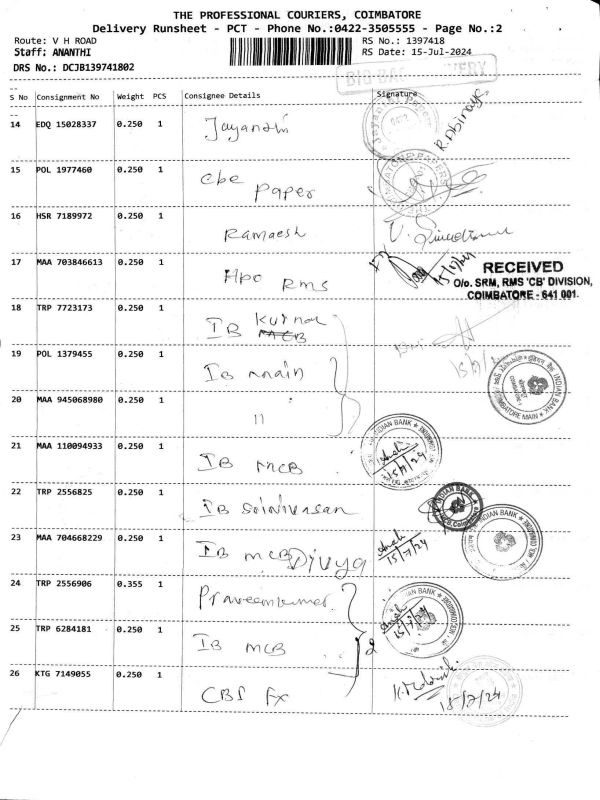 THE PROFESSIONAL COURIERS, COIMBATORE
Delivery Runsheet - PCT - Phone No.:0422-3505555 - Page No.:2
Route: V H ROAD RS No.: 1397418
Staff: ANANTHI RS Date: 15-Jul-2024
DRS No.: DCJB139741802
S No Consignment No Weight PCS Consignee Details Signature
14 EDQ 15028337 0.250 1 Jayanthi
15 POL 1977460 0.250 1 cbe
paper
16 HSR 7189972 0.250 1 Ramaesh
17 MAA 703846613 0.250 1 HPO RMS 15/7/24
RECEIVED
O/o. SRM, RMS 'CB' DIVISION,
COIMBATORE - 641 001.
18 TRP 7723173 0.250 1 IB
19 POL 1379455 0.250 1 IB main
INDIAN BANK
COIMBATORE MAIN
20 MAA 945068980 0.250 1 11
21 MAA 110094933 0.250 1 IB MCB 15/7/24
INDIAN BANK
22 TRP 2556825 0.250 1 IB Srinivasan
INDIAN BANK
23 MAA 704668229 0.250 1 IB MCB Divya 15/7/24
INDIAN BANK
24 TRP 2556906 0.355 1 Praveenkumar 15/7/24
INDIAN BANK
25 TRP 6284181 0.250 1 IB MCB 2
26 KTG 7149055 0.250 1 CBS FX 15/7/24